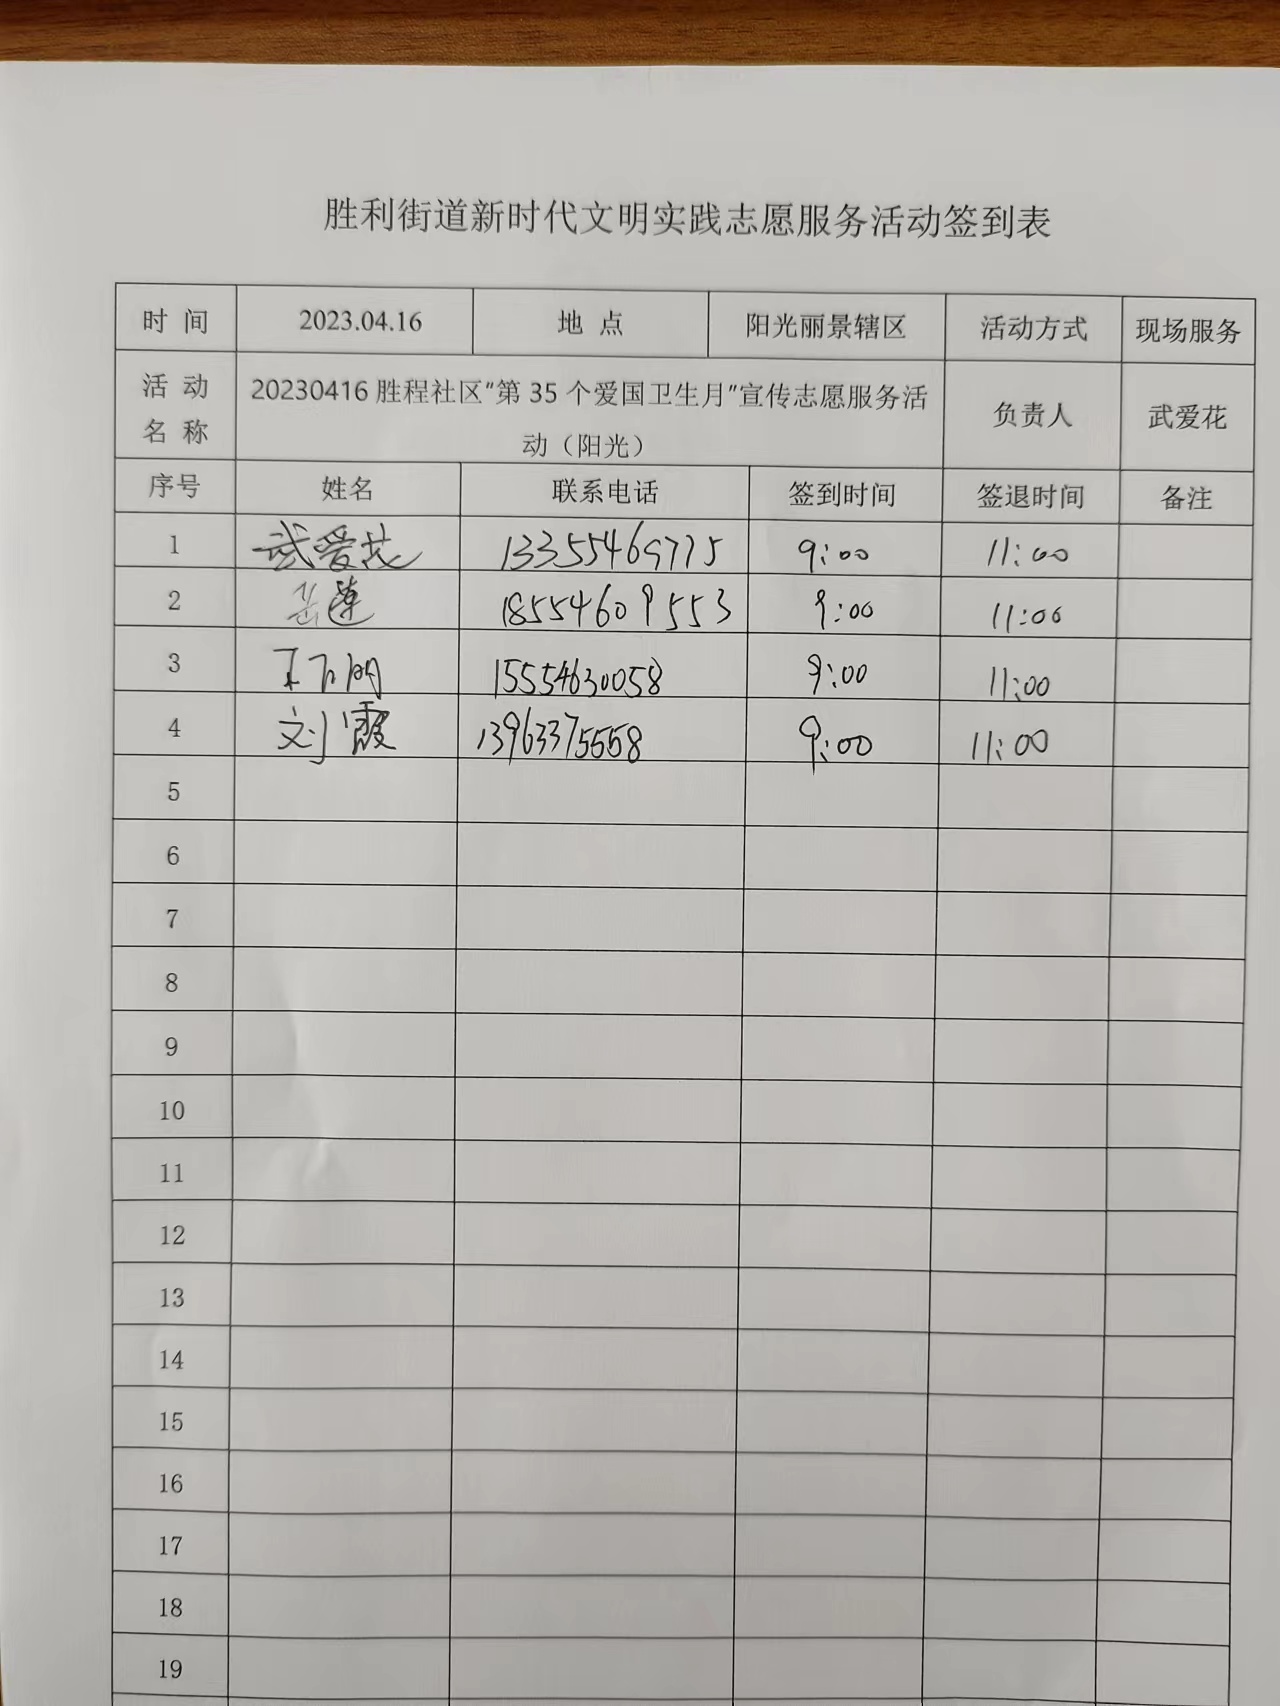 胜利街道新时代文明实践志愿服务活动签到表
时 间 2023.04.16 地 点 阳光丽景辖区 活动方式 现场服务
活 动 名 称 20230416 胜程社区"第 35 个爱国卫生月"宣传志愿服务活
动（阳光） 负责人 武爱花
序号 姓名 联系电话 签到时间 签退时间 备注
1 武爱花 13355469775 9:00 11:00
2 岳莲 18554609553 9:00 11:00
3 15554630058 9:00 11:00
4 刘霞 13963375558 9:00 11:00
5
6
7
8
9
10
11
12
13
14
15
16
17
18
19